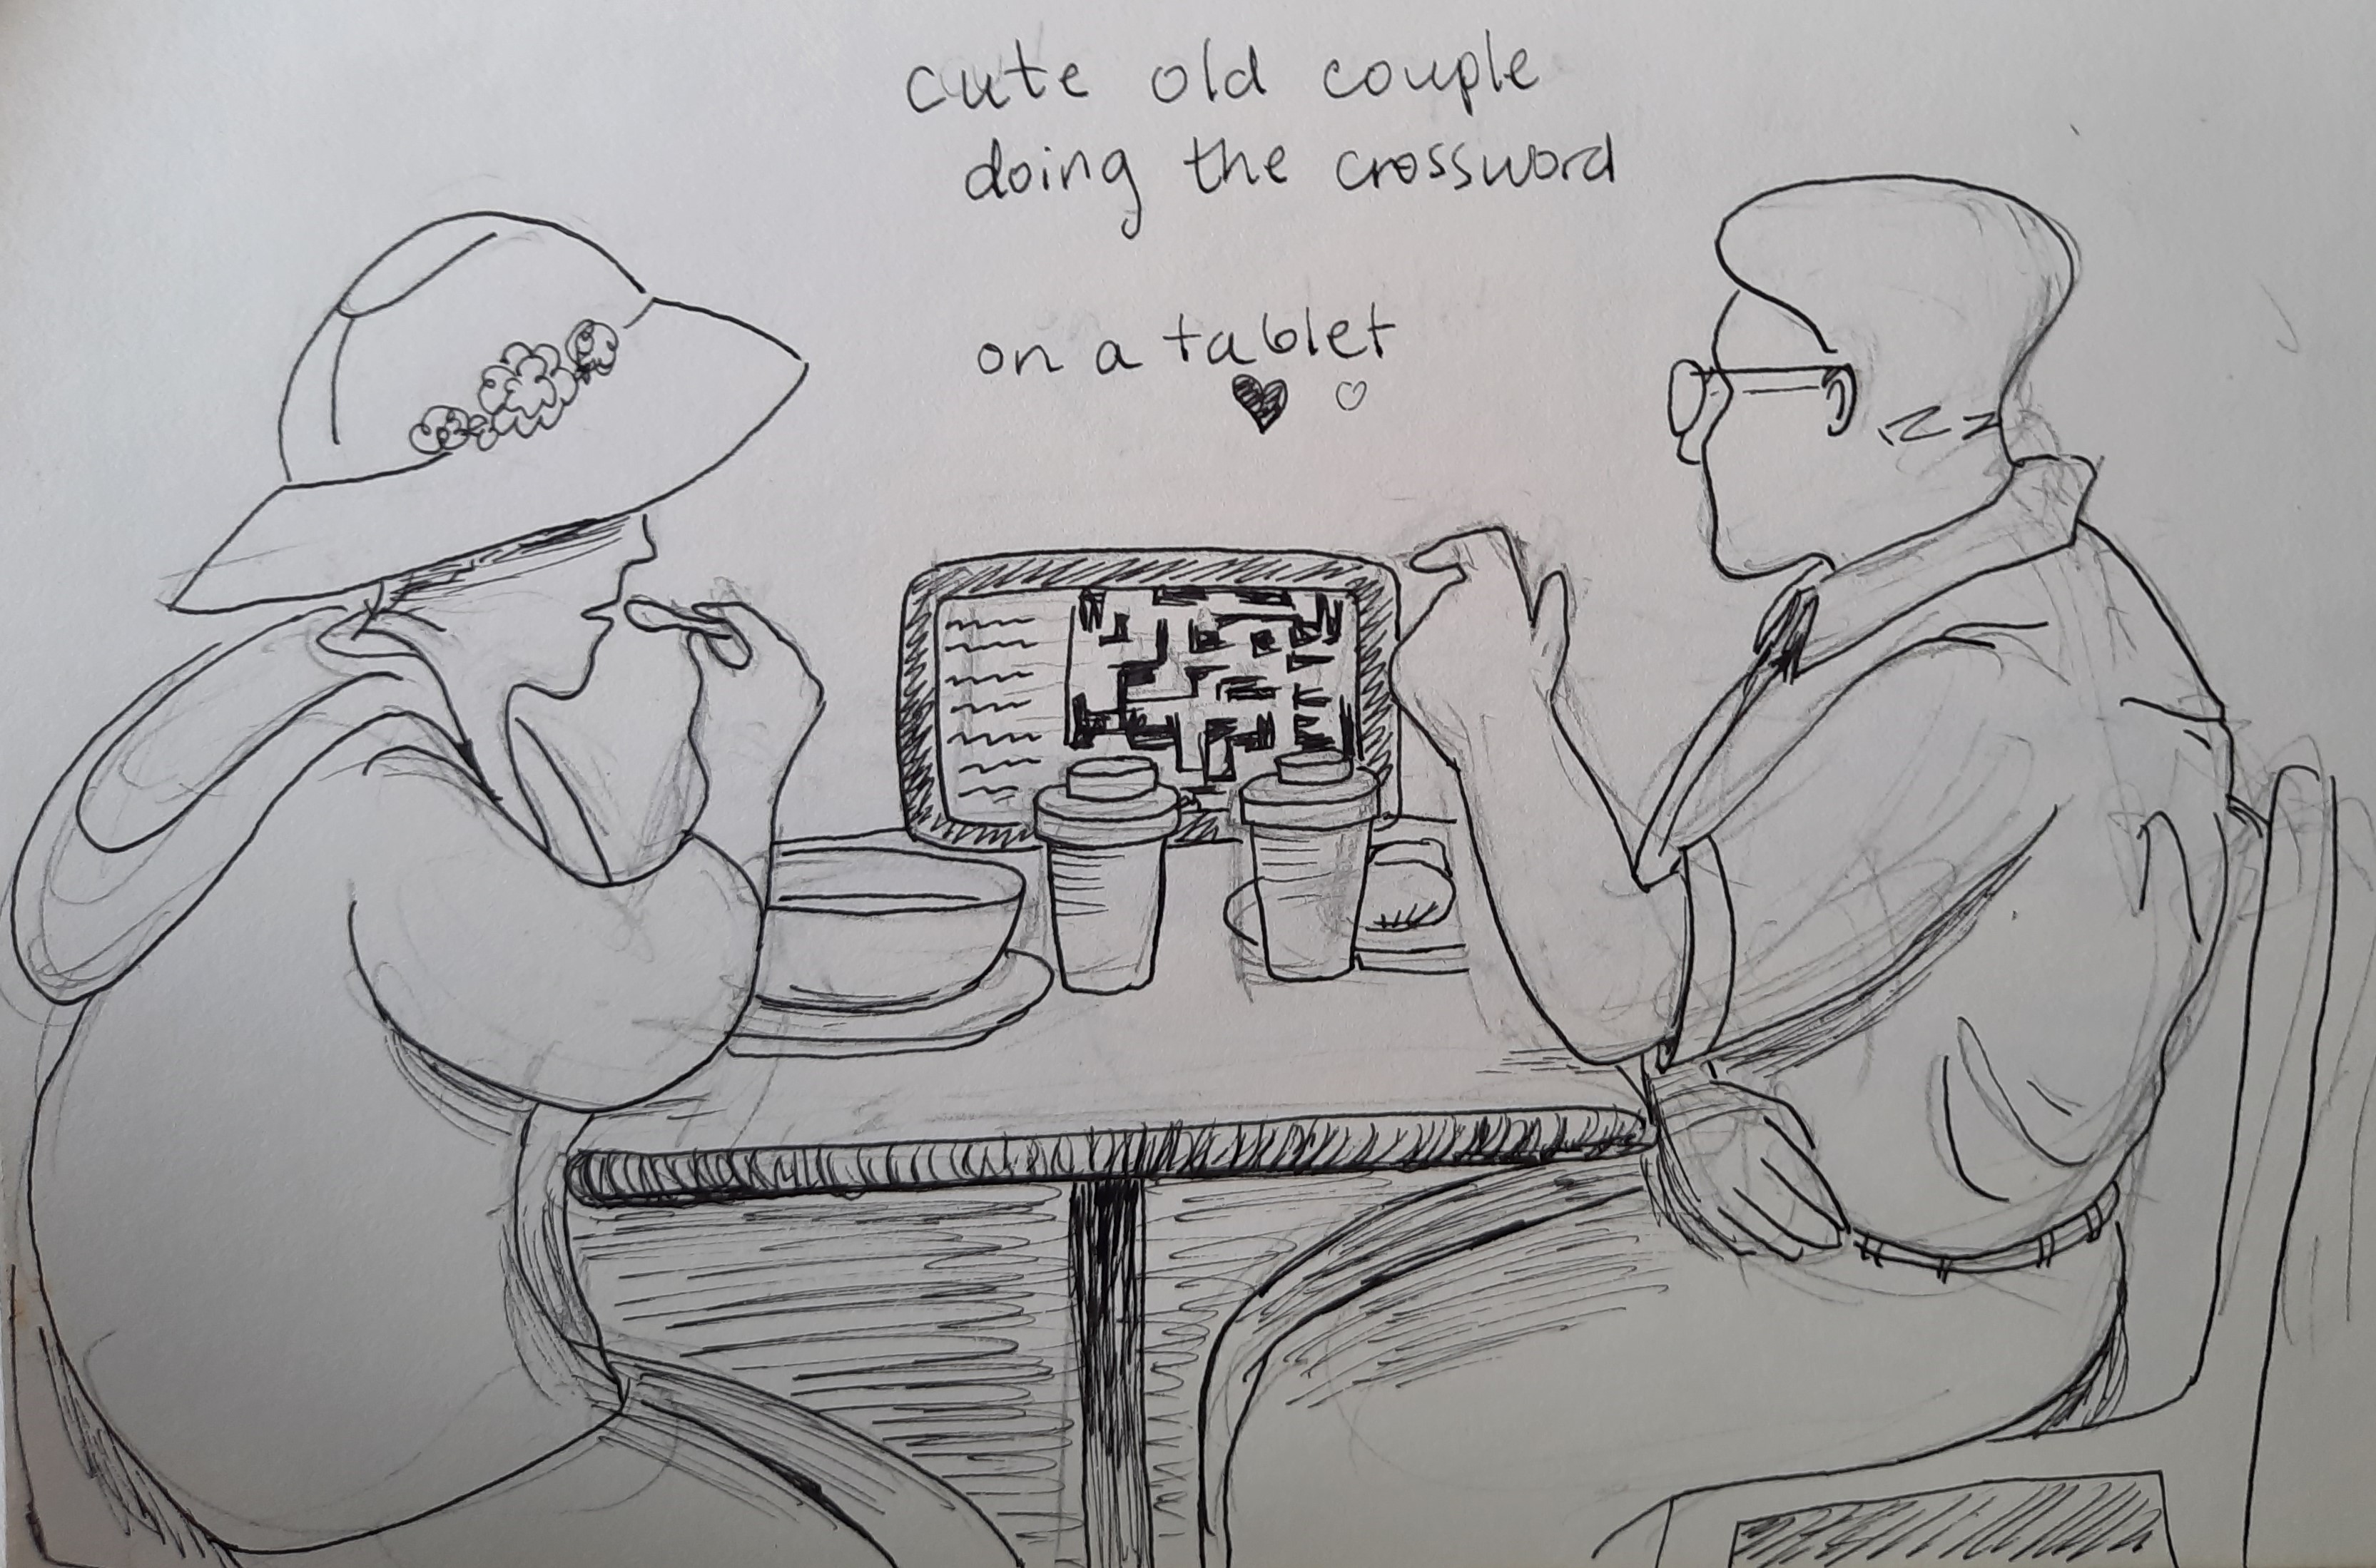 cute old couple
doing the crossword
on a tablet